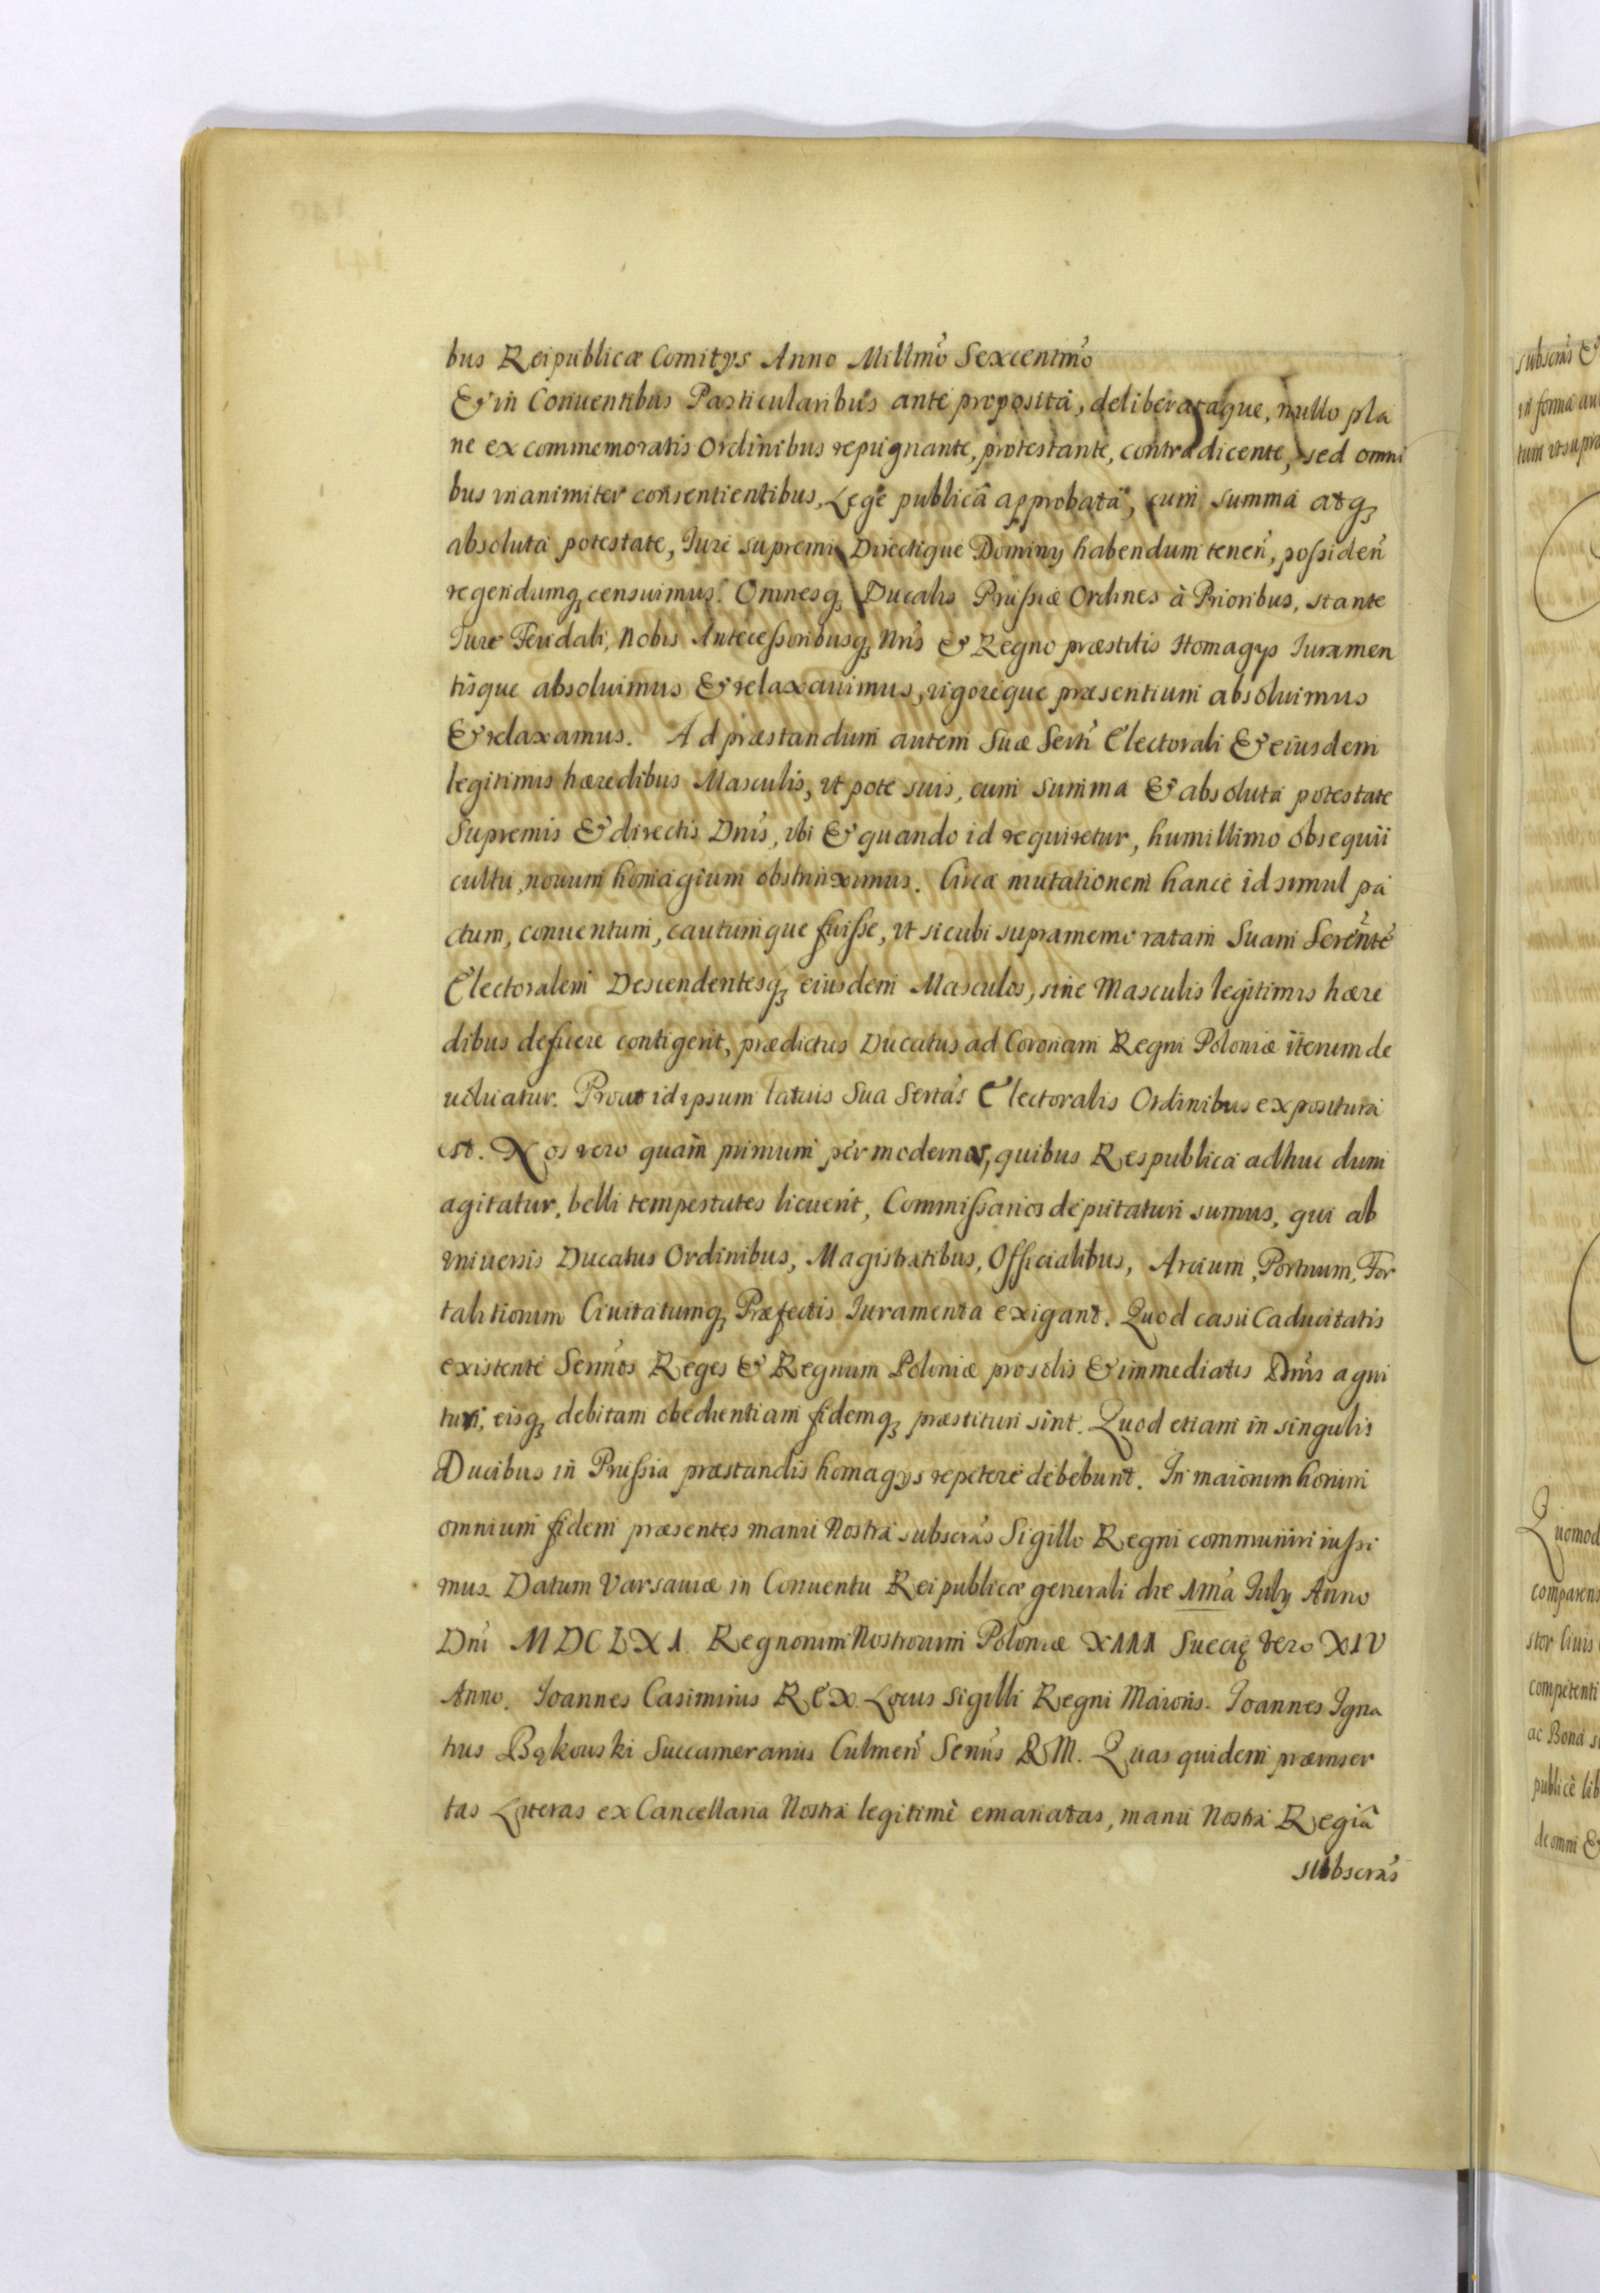 bus Reipublicæ Comitys Anno Millmo Sexcentmo
& in Conuentibus Particularibus ante proposita, deliberataque, nullo pla
ne ex commemoratis Ordinibus repugnante, protestante, contradicente, sed omni
bus vnanimiter consentientibus, Lege publicâ approbata, cum summa atq
absoluta potestate, Iure supremi Directique Dominy habendum tenen, possiden
regendumq censuimus. Omnesq Ducalis Prussiæ Ordines à Prioribus, stante
Iure Feudali, Nobis Antecessoribusq Nris & Regno præstitis Homagys Iuramen
tisque absoluimus & relaxauimus, vigoreque præsentium absoluimus
& relaxamus. Ad præstandum autem Suæ Serti Electorali & eiusdem
legitimis hæredibus Masculis, vt pote suis, cum summa & absoluta potestate
Supremis & directis Dnis, vbi & quando id requiretur, humillimo obsequii
cultu, nouum homagium obstrinximus. Circa mutationem hance id simul pa
ctum, conuentum, cautumque fuisse, vt sicubi supramemoratam Suam Serente
Electoralem Descendentesq eiusdem Masculos, sine Masculis legitimis hære
dibus deficere contigerit, prædictus Ducatus ad Coronam Regni Poloniæ iterum de
uoluatur. Prout id ipsum latius Sua Sertas Electoralis Ordinibus expositura
est. Nos vero quam primum per modernas, quibus Respublica adhuc dum
agitatur, belli tempestates licuerit, Commissarios deputaturi sumus, qui ab
vniuersis Ducatus Ordinibus, Magistratibus, Officialibus, Arcium, Portuum, For
talitiorum Ciuitatumq Præfectis Iuramenta exigant. Quod casu Caducitatis
existente Sermos Reges & Regnum Poloniæ pro solis & immediatis Dnis agni
turi, eisq debitam obedientiam fidemq præstituri sint. Quod etiam in singulis
Ducibus in Prussia præstandis homagys repetere debebunt. In maiorum horum
omnium fidem præsentes manu Nostra subscras Sigillo Regni communiri iussi
mus. Datum Varsauiæ in Conuentu Reipublicæ generali die 1ma July Anno
Dni MDCLXI. Regnorum Nostrorum Poloniæ XIII Suecię vero XIV
Anno. Ioannes Casimirus REX. Locus Sigilli Regni Maioris. Ioannes Igna
tius Bąkouski Succamerarius Culmen Senus RM. Quas quidem præinser
tas Literas ex Cancellaria Nostra legitimè emanatas, manu Nostra Regiâ
subscras